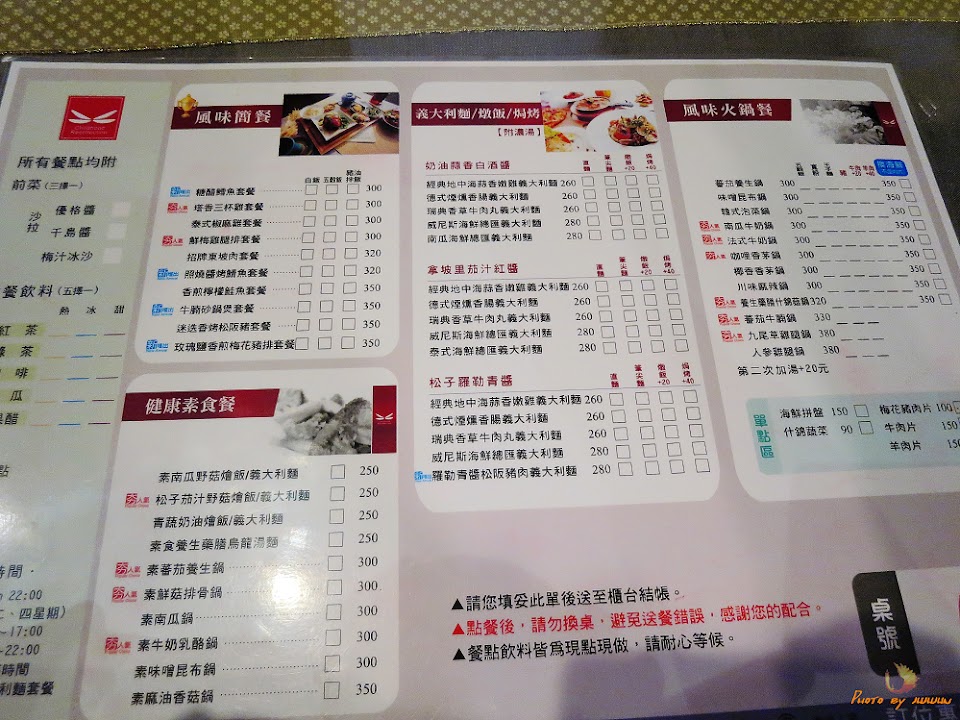 所有餐點均附
前菜(三擇一)
沙拉
優格醬
千島醬
梅汁冰沙
餐飲料(五擇一)
熱 冰 甜
紅 茶
啡
瓜
果醋
點
時間.
22:00
二、四星期)
~17:00
~22:00
時間
利麵套餐
風味簡餐
白飯 五穀飯 豬油拌飯
糖醋鱈魚套餐 300
夯人氣 塔香三杯雞套餐 300
泰式椒麻雞套餐 300
夯人氣 鮮梅雞腿排套餐 300
招牌東坡肉套餐 320
照燒醬烤鯖魚套餐 320
香煎檸檬鮭魚套餐 350
牛腩砂鍋煲套餐 350
迷迭香烤松阪豬套餐 350
玫瑰鹽香煎梅花豬排套餐 350
健康素食餐
素南瓜野菇燴飯/義大利麵 250
夯人氣 松子茄汁野菇燴飯/義大利麵 250
青蔬奶油燴飯/義大利麵 250
素食養生藥膳烏龍湯麵 250
夯人氣 素蕃茄養生鍋 300
夯人氣 素鮮菇排骨鍋 300
素南瓜鍋 300
夯人氣 素牛奶乳酪鍋 300
素味噌昆布鍋 300
素麻油香菇鍋 350
義大利麵/燉飯/焗烤
【附濃湯】
奶油蒜香白酒醬
直麵 筆尖麵 燉飯+20 焗烤+40
經典地中海蒜香嫩雞義大利麵 260
德式煙燻香腸義大利麵 260
瑞典香草牛肉丸義大利麵 260
威尼斯海鮮總匯義大利麵 280
南瓜海鮮總匯義大利麵 280
拿坡里茄汁紅醬
直麵 筆尖麵 燉飯+20 焗烤+40
經典地中海蒜香嫩雞義大利麵 260
德式煙燻香腸義大利麵 260
瑞典香草牛肉丸義大利麵 260
威尼斯海鮮總匯義大利麵 280
泰式海鮮總匯義大利麵 280
松子羅勒青醬
直麵 筆尖麵 燉飯+20 焗烤+40
經典地中海蒜香嫩雞義大利麵 260
德式煙燻香腸義大利麵 260
瑞典香草牛肉丸義大利麵 260
威尼斯海鮮總匯義大利麵 280
羅勒青醬松阪豬肉義大利麵 280
風味火鍋餐
蕃茄養生鍋 300 350
味噌昆布鍋 300 350
韓式泡菜鍋 300 350
夯人氣 南瓜牛奶鍋 300 350
夯人氣 法式牛奶鍋 300 350
夯人氣 咖哩香茅鍋 300 350
椰香香茅鍋 300 350
川味麻辣鍋 300 350
夯人氣 養生藥膳什錦菇鍋 320 350
夯人氣 蕃茄牛腩鍋 330
夯人氣 九尾草雞腿鍋 380
人參雞腿鍋 380
第二次加湯+20元
單點區
海鮮拼盤 150 梅花豬肉片 100
什錦蔬菜 90 牛肉片 150
羊肉片 150
▲請您填妥此單後送至櫃台結帳。
▲點餐後，請勿換桌，避免送餐錯誤，感謝您的配合。
▲餐點飲料皆為現點現做，請耐心等候。
桌號
Photo by wwwww